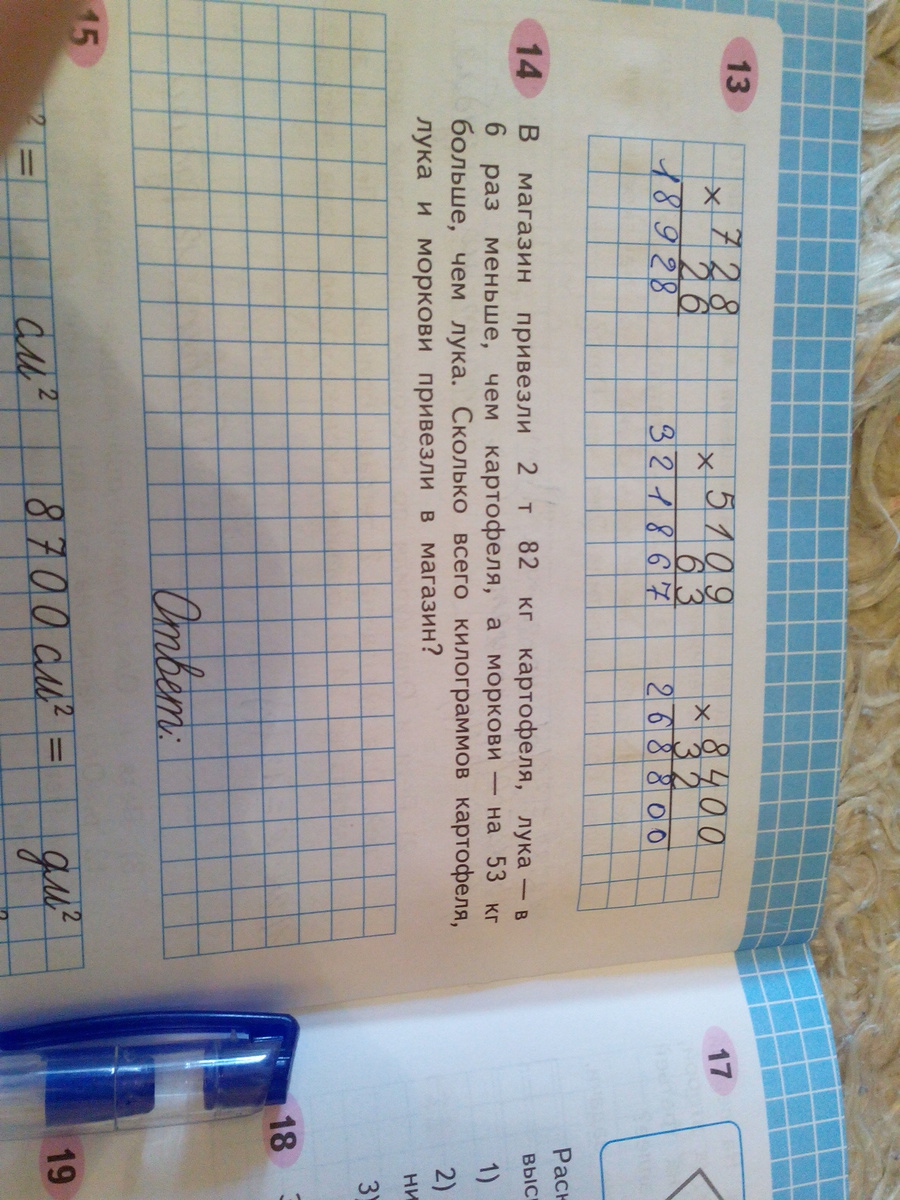 13
× 728
26
18928
× 5109
63
321867
× 8400
32
268800
14
В магазин привезли 2 т 82 кг картофеля, лука — в
6 раз меньше, чем картофеля, а моркови — на 53 кг
больше, чем лука. Сколько всего килограммов картофеля,
лука и моркови привезли в магазин?
Ответ:
15
² = см² 8700 см² = дм²
17
18
1)
2)
3)
19